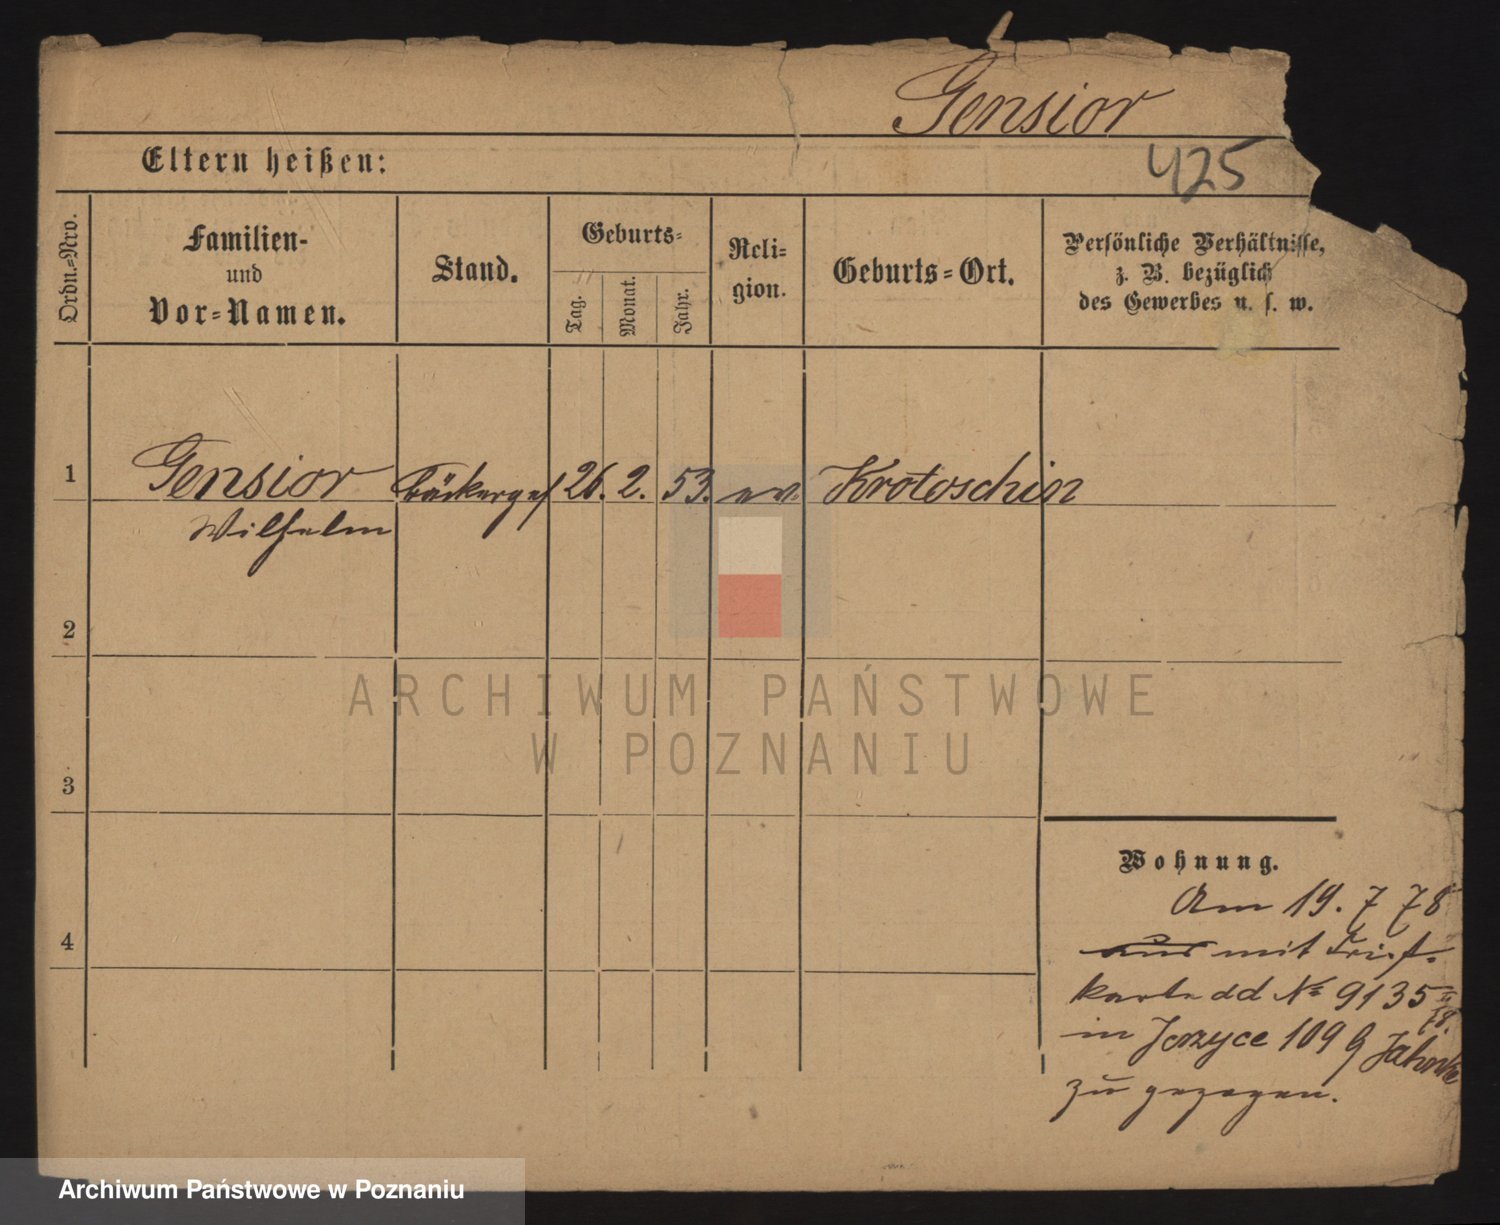 Gensior
Eltern heißen:
425
Ordn.-Nro.
Familien-
und
Vor-Namen.
Stand.
Geburts-
Tag.
Monat.
Jahr.
Reli-
gion.
Geburts-Ort.
Persönliche Verhältnisse,
z. B. bezüglich
des Gewerbes u. s. w.
1
Gensior Bäckerges 26. 2. 53. ev. Krotoschin
Wilhelm
2
3
4
ARCHIWUM PAŃSTWOWE
W POZNANIU
Wohnung.
Am 19. 7 78
aus mit
karte dd No 9135
78.
in Jerzyce 109 Jahnke
zu gezogen.
Archiwum Państwowe w Poznaniu